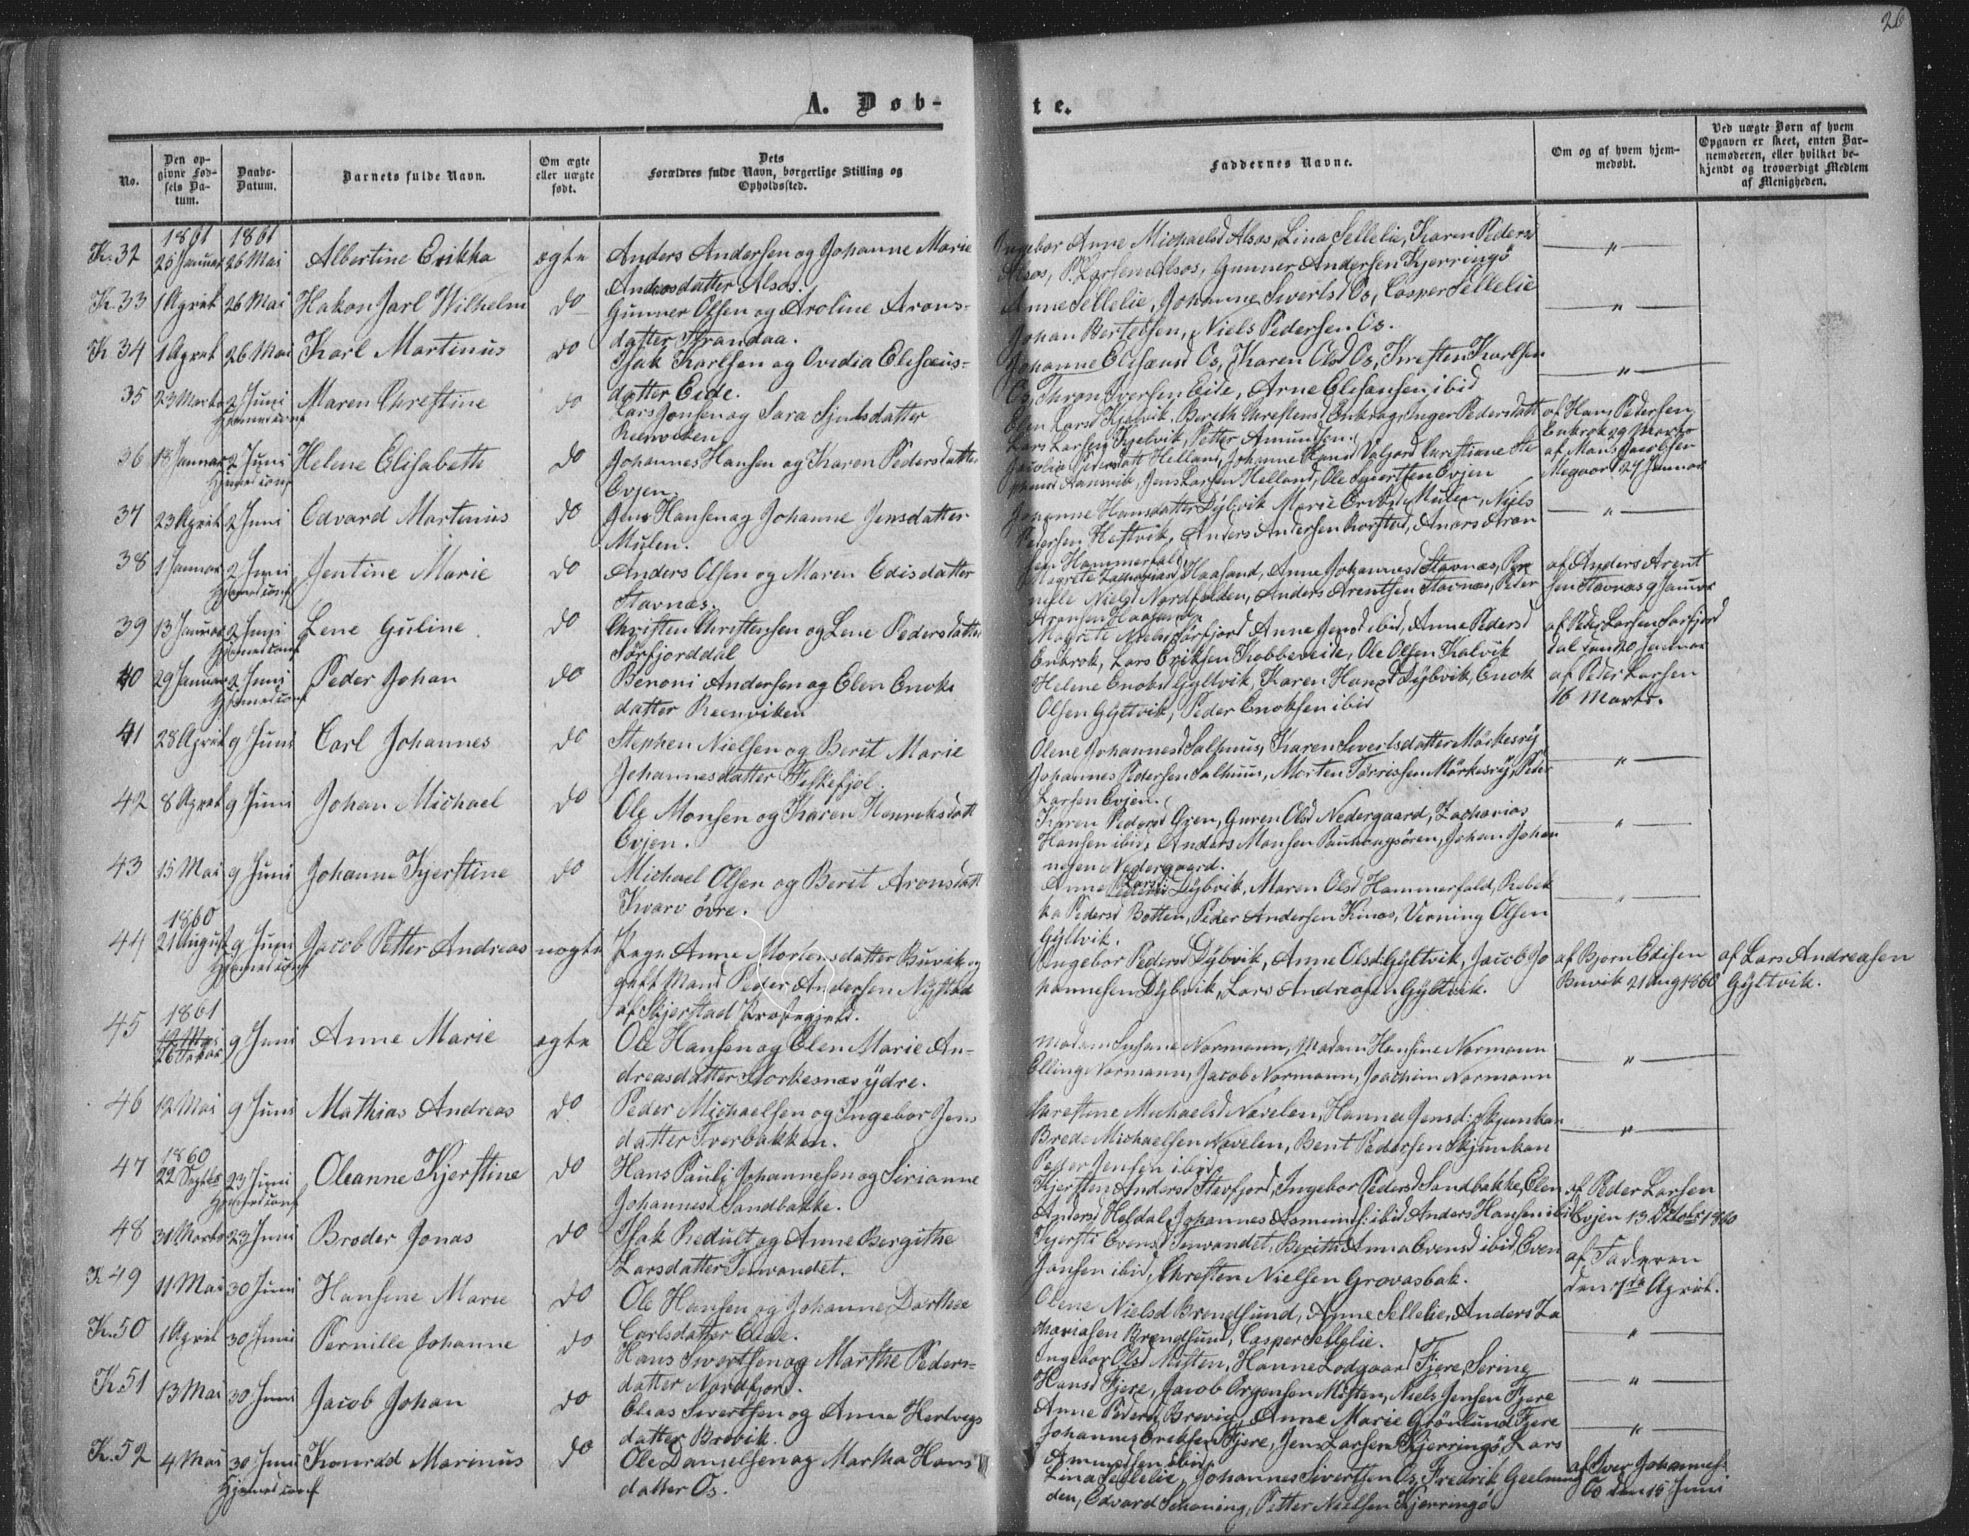 26
A. Døb-
te.
No.
Den op-
givne Fød-
sels Da-
tum.
Daabs-
Datum.
Barnets fulde Navn.
Om ægte
eller uægte
født.
Dets
Forældres fulde Navn, borgerlige Stilling og
Opholdssted.
Faddernes Navne.
Om og af hvem hjem-
medøbt.
Ved uægte Børn af hvem
Opgaven er skeet, enten Bar-
nemoderen, eller hvilket be-
kjendt og troværdigt Medlem
af Menigheden.
1861 1861
K. 32 25 Januar 26 Mai Albertine Erikka ægte Anders Andersen og Johanne Marie
Andersdatter Alsos.
Ingebor Anne Michaelsd Alsos, Lina Sellelie, Karen Pedersd
Alsos, P. Larsen Alsos, Gunner Andersen Kjerringö
K. 33 1 April 26 Mai Hakon Jarl Wilhelm do Gunner Olsen og Aroline Arons-
datter Strandaa.
Anne Sellelie, Johanne Siverts Os, Casper Sellelie
Johan Bertelsen, Niels Pedersen Os.
K 34 1 April 26 Mai Karl Martinus do Isak Karlsen og Ovidia Elisæus-
datter Eide.
Johanne Elisæusd Os, Karen Olsd Os, Kresten Karlsen
Os, Thron Iversen Eide, Arne Elisæusen ibid
35 23 Marts 2 Juni Maren Chrestine do Lars Jonsen og Sara Sjulsdatter
Hjemed conf
Reenviken
Elen Larsd Kjelvik, Bereth Chrestensd Enkrog, Inger Pedersdatt
Lars Larsen Kjelvik, Petter Amundsen
af Hans Pedersen
Enkrok 29 Marts
36 18 Januar 2 Juni Helene Elisabeth do Johannes Hansen og Karen Pedersdatter
Hjemed conf
Evjen.
Jacobia Petersdatt Helland, Johanne Hansd Valjord Chrestiane Ste
Jens Larsen Helland, Ole Sivertsen Evjen
af Mons Jacobsen
Megaard 27 Januar
37 23 April 2 Juni Edvard Martinus do Jens Hansen og Johanne Jensdatter
Mulen.
Johanne Hansdatter Dÿbvik Marie Mulen, Niels
Pedersen Heftvik, Anders Andersen
sen Hammerfald
38 1 Januar 2 Juni Jentine Marie do Anders Olsen og Maren Edisdatter
Hjemed conf
Stavnæs.
Magrete Zachariasd Haasand, Anne Johannesd Stavnæs, Per
nelle Nielsd Nordfolden, Anders Arentsen Stavnæs, Peter
Aronsen Haasand
af Anders Arent
sen Stavnæs 9 Januar
39 13 Januar 2 Juni Lene Guline do Christen Christensen og Lene Pedersdatter
Hjemed conf
Sörfjorddal
Magrete Nielsd Sörfjord, Anne Jensd ibid, Anne Pedersd
Enkrok, Lars Eriksen Kobbeveide, Ole Olsen Kalvik
af Peder Larsen Sörfjord
dal den 20 Januar
40 29 Januar 2 Juni Peder Johan do Benoni Andersen og Elen Enoks
Hjemed conf
datter Reenviken
Helene Enoksd Gyltvik, Karen Hansd Dÿbvik, Enok
Olsen Gyltvik, Peder Enoksen ibid
af Peder Larsen
16 Marts.
41 28 April 9 Juni Carl Johannes do Stephen Nielsen og Berit Marie
Johannesdatter Fiskefjöl.
Olene Johannesd Salhuus, Karen Sivertsdatter Mörkesvÿ
Johannes Pedersen Salhuus, Morten Torrissen Mörkesvÿ, Peder
Larsen Evjen.
42 8 April 9 Juni Johan Michael do Ole Monsen og Karen Henriksdatt
Evjen.
Karen Pedersd Gren, Guren Olsd Nedergaard, Zacharias
Hansen ibid, Anders Monsen, Johan Johan
nesen Nedergaard.
43 15 Mai 9 Juni Johanne Kjerstine do Michael Olsen og Berit Aronsdatt
Kvarv övre.
Anne Larsd Dÿbvik, Maren Olsd Hammerfald, Rebek
ka Pedersd Botten, Peder Andersen Kines, Verning Olsen
Gyltvik.
1860
44 21 August 9 Juni Jacob Petter Andreas uægte Pige Anne Mortensdatter Buvik og
Hjemed conf
gift Mand Peder Andersen Nystad
af Skjerstad Præstegjeld.
Ingebor Pedersd Dÿbvik, Anne Olsd Gyltvik, Jacob Jo
hannesen Dÿbvik, Lars Andreasen Gyltvik.
af Bjorn Edisen
Buvik 21 Aug 1860
af Lars Andreasen
Gyltvik.
1861
45 9 Juni Anne Marie ægte Ole Hansen og Elen Marie An-
dreasdatter Storkesnæs ÿdre.
Madam Susane Normann, Madam Hansine Normann
Elling Normann, Jacob Normann, Joachim Normann
46 12 Mai 9 Juni Mathias Andreas do Peder Michaelsen og Ingebor Jens
datter Tverbakken.
Chrestine Michaelsd Navelen, Hanna Jensd: Skjunkan
Brede Michaelsen Navelen, Berit Pedersen Skjunkan
Petter Jensen ibid
1860
47 22 Septbr 23 Juni Oleanne Kjerstine do Hans Pauli Johannesen og Sirianne
Hjemed conf
Johannesd Sandbakke.
Kjersten Andersd Stavfjord, Ingebor Pedersd Sandbakke, Elen
Andersd Heldal, Johannes Asmunds: ibid Anders Hansen ibid
af Peder Larsen
Evjen 13 Oktobr 1860
48 31 Marts 23 Juni Broder Jonas do Isak Redult og Anne Bergithe
Larsdatter Servandet.
Kjersti Evensd Servandet, Berith Anna Evensd ibid, Even
Jonsen ibid, Chresten Nielsen Grovasbak.
af Faderen
den 7de April.
K 49 11 Mai 30 Juni Hansine Marie do Ole Hansen og Johanne Dorthea
Carlsdatter Eide.
Olene Nielsd Brendsund, Anne Sellelie, Anders Za
chariasen Brendsund, Casper Sellelie.
K. 50 1 April 30 Juni Pernille Johanne do Hans Sivertsen og Marthe Peders-
datter Nordfjord.
Ingebor Olsd Misten, Hanne Lodgaard Fjere, Serine
Hansd Fjere, Jacob Orgensen Misten, Niels Jensen Fjere
K. 51 13 Mai 30 Juni Jacob Johan do Elias Sivertsen og Anne Hertvegs
datter Brevik.
Anne Pedersd Brevig, Anne Marie Grönlund Fjere
Johannes Eriksen Fjere, Jens Larsen Kjerringö, Lars
Amundsen ibid
K. 52 4 Mai 30 Juni Konrad Marinus do Ole Danielsen og Martha Hans
Hjemed conf
datter Os.
Lina Sellelie, Johannes Sivertsen Os, Fredrik Geelmuy
den, Edvard Schöning, Petter Nielsen Kjerringö
af Iver Johannes:
Os den 15 Juni